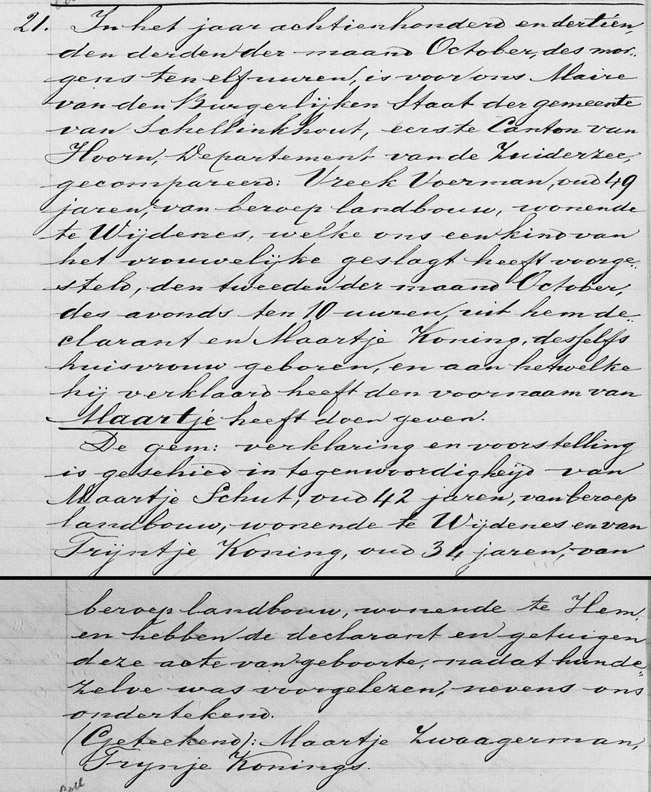 21. In het jaar achtienhonderd en dertien,
den derden der maand October, des mor-
gens ten elf uuren, is voor ons Maire
van den Burgerlijken Staat der gemeente
van Schellinkhout, eerste Canton van
Hoorn, Departement van de Zuiderzee,
gecompareerd: Vreek Voerman, oud 49
jaren, van beroep landbouw, wonende
te Wijdenes, welke ons een kind van
het vrouwelijke geslagt heeft voorge-
steld, den tweeden der maand October,
des avonds ten 10 uuren, uit hem de-
clarant en Maartje Koning, desselfs
huisvrouw geboren, en aan hetwelke
hij verklaard heeft den voornaam van
Maartje heeft doen geven.
De gem: verklaring en voorstelling
is geschied in tegenwoordigheijd van
Maartje Schut, oud 42 jaren, van beroep
landbouw, wonende te Wijdenes en van
Trijntje Koning, oud 34 jaren, van
beroep landbouw, wonende te Hem,
en hebben de declarant en getuigen
deze acte van geboorte, nadat hun de-
zelve was voorgelezen, nevens ons
ondertekend.
(Geteekend): Maartje Zwaagerman,
Trynje Konings.